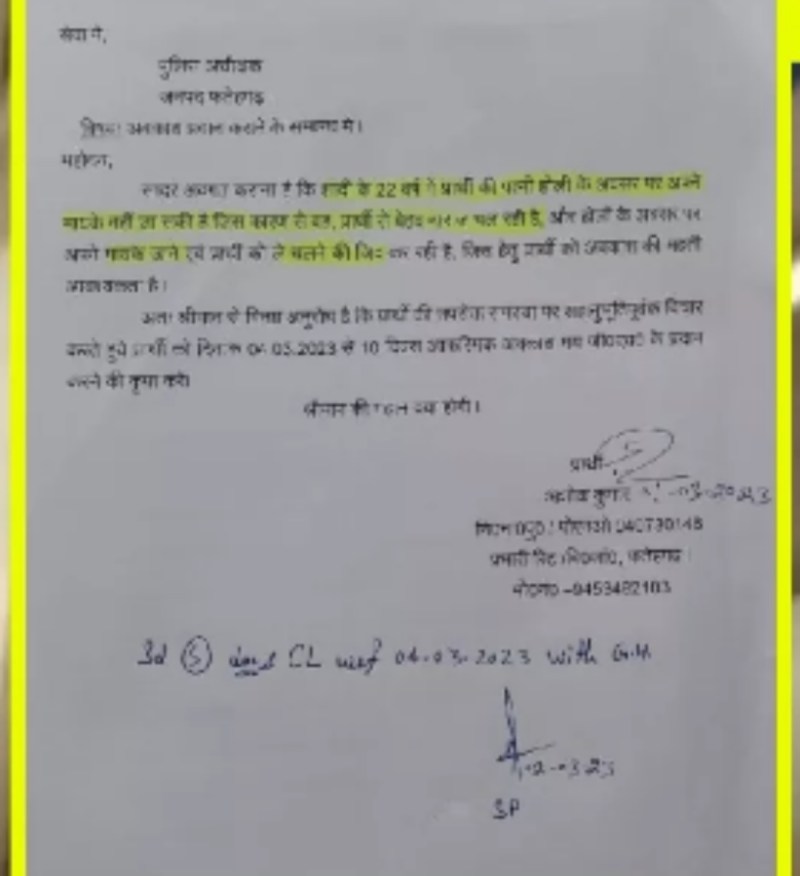 सेवा में,
पुलिस अधीक्षक
जनपद फतेहगढ़
विषयः अवकाश प्रदान कराने के सम्बन्ध में।
महोदय,
सादर अवगत कराना है कि शादी के 22 वर्ष में प्रार्थी की पत्नी होली के अवसर पर अपने
मायके नहीं जा सकी है जिस कारण से वह, प्रार्थी से बेहद नाराज चल रही है, और होली के अवसर पर
अपने मायके जाने एवं प्रार्थी को ले चलने की जिद कर रही है, जिस हेतु प्रार्थी को अवकाश की महती
आवश्यकता है।
अतः श्रीमान से विनम्र अनुरोध है कि प्रार्थी की उपरोक्त समस्या पर सहानुभूतिपूर्वक विचार
करते हुये प्रार्थी को दिनांक 04.03.2023 से 10 दिवस आकस्मिक अवकाश मय के प्रदान
करने की कृपा करें।
श्रीमान की दया होगी।
प्रार्थी
कुमार 03-2023
प्रभारी फतेहगढ़।
5 days CL wef 04-03-2023 with G.H.
02-03-23
SP